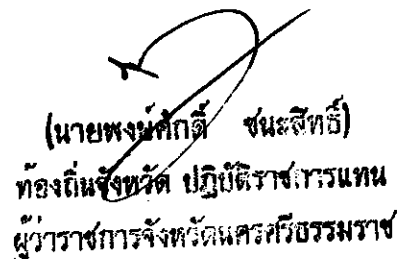 (นายพงษ์ศักดิ์ ชนะสิทธิ์)
ท้องถิ่นจังหวัด ปฏิบัติราชการแทน
ผู้ว่าราชการจังหวัดนครศรีธรรมราช